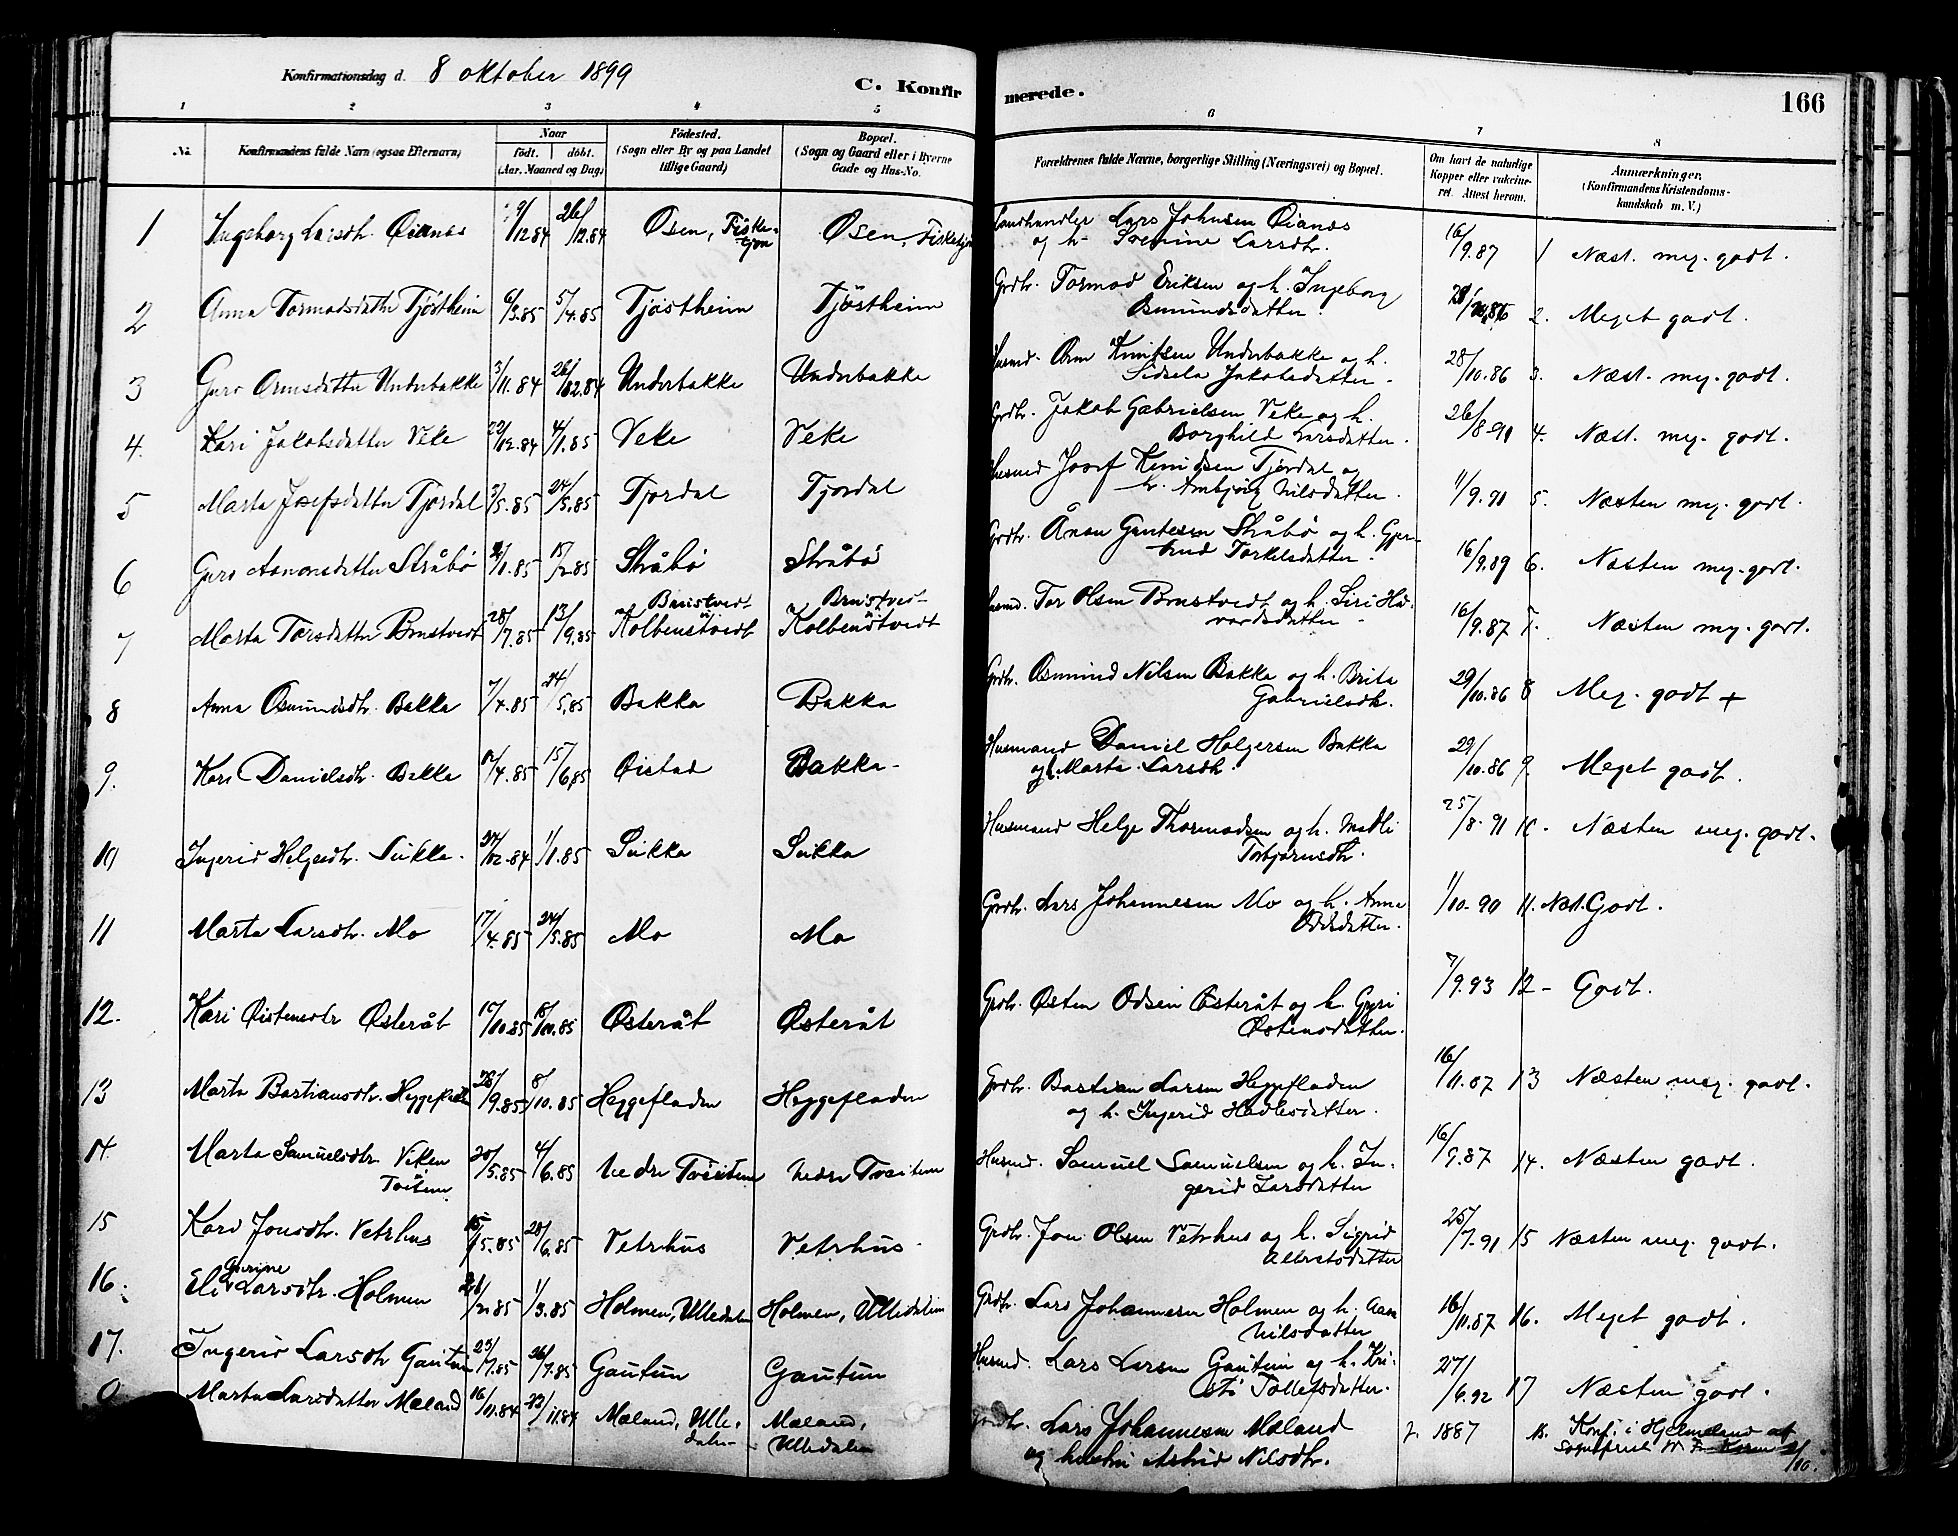 Konfirmationsdag d. 8 oktober 1899
C. Konfirmerede.
166
1 2 3 4 5 6 7 8
No. Konfirmandens fulde Navn (ogsaa Efternavn) Naar født. døbt. (Aar, Maaned og Dag) Fødested. (Sogn eller By og paa Landet tillige Gaard) Bopæl. (Sogn og Gaard eller i Byerne Gade og Hus-No. Forældrenes fulde Navne, borgerlige Stilling (Næringsvei) og Bopæl. Om havt de naturlige Kopper eller vakcineret. Attest herom. Anmærkninger. (Konfirmandens Kristendomskundskab m. V.)
1 Ingeborg Larsdtr. Øianes /12 84 26/12.84 Øsen, Fiske- Øsen, Landhandler Lars Johnsen Øianes
og h. Larsdtr. 16/9.87 1 Næst. mg. godt.
2 Anna Tormodsdatter Tjöstheim 6/3.85 5/4.85 Tjöstheim Tjöstheim Grdbr. Tormod Eriksen og h. Ingeborg
Osmundsdatter. 2. Meget godt.
3 Guro Ormsdatter Underbakke 3/11.84 26/12.84 Underbakke Underbakke Husmd. Orm Knutsen Underbakke og h.
Sidsela Jakobsdatter 28/10.86 3. Næst. mg. godt.
4. Kari Jakobsdatter Veke 22/12.84 4/1.85 Veke Veke Grdbr. Jakob Gabrielsen Veke og h.
Borghild Larsdatter. 26/8-91 4. Næst. mg. godt.
5 Marta Josefsdatter Tjördal 3/5.85 24/5.85 Tjördal Tjördal Husmd Josef Knudsen Tjördal og
h. Nilsdatter. 11/9.91 5. Næsten mg. godt.
6 Guro Aanonsdatter Stråbö /1.85 15/2 85 Stråbö Stråbö Grdbr. Ånon Stråbö og h. Gjer-
trud Torkelsdatter. 16/9.89 6. Næsten mg. godt.
7 Marta Torsdatter Brustveit 28/7.85 13/9.85 Brustveit i Kolbenstvedt Brustveit i Kolbenstvedt Husmd. Tor Olsen Brustvedt og h. Siri Hå-
vardsdatter 16/9.87 7. Næsten mg. godt.
8 Anna Osmundsdtr. Bakka 7/4.85 24/5.85 Bakka Bakka Grdbr. Osmund Nilsen Bakka og h. Brita
Gabrielsdtr. 29/10.86 8 Meg. godt +
9. Kari Danielsdtr. Bakka 8/4.85 15/6.85 Øistad Bakka Husmand Daniel Holgersen Bakka
og h. Marta Larsdtr. 29/10.86 9 Meget godt.
10 Ingerid Helgesdtr. Sukka. 24/12.84 1/1.85 Sukka Sukka Husmand Helge Thormodsen og h. Madli
Torbjørnsdtr. 25/8-91 10. Næsten meg. godt.
11 Marta Larsdtr. Mo 17/4.85 24/5.85 Mo Mo Grdbr. Lars Johannesen Mo og h. Anna
Oddsdatter. 1/10-90 11. Næst. Godt.
12. Kari Øistensdtr Østeråt /10.85 18/10.85 Østeråt Østeråt Grdbr. Østen Odsen Østeråt og h. Gyri
Østensdatter. 7/9.93 12 - Godt.
13 Marta Bastiansdtr. 28/9.85 8/10.85 Heggefladen Heggefladen Grdbr. Bastian Larsen Heggefladen
og h. Ingerid Hadlesdatter. 16/11.87 13 Næsten meg. godt.
14. Marta Samuelsdtr. Viken 20/5.85 4/6.85 Nedre Tveitem Nedre Tveitem Husmd. Samuel Samuelsen og h. In-
gerid Larsdatter 16/9.87 14. Næsten godt.
15 Kari Jonsdtr. Vetrhus 15/5.85 28/6.85 Vetrhus Vetrhus Grdbr. Jon Olsen Vetrhus og h. Sigrid
25/7-91 15 Næsten meg. godt.
16. Eli Larsdtr. Holmen /2.85 1/3.85 Holmen, Ulledalen Holmen, Ulledalen Grdbr. Lars Johannesen Holmen og h. Aasa
Nilsdatter 16/11.87 16. Meget godt.
17. Ingerid Larsdtr Gautun 23/7.85 26/7.85 Gautun Gautun Husmd. Lars Larsen Gautun og h. Kri-
sti Tollefsdatter. 27/6.92 17 Næsten godt.
Marta Larsdatter Mæland 16/11.84 23/11.84 Mæland, Ulle-
dalen Mæland,
Ulledalen Grdbr. Lars Johannesen Mæland
og hustru Astrid Nilsdtr. 1887 18. Konf. i Hjelmeland af
Sognepræst